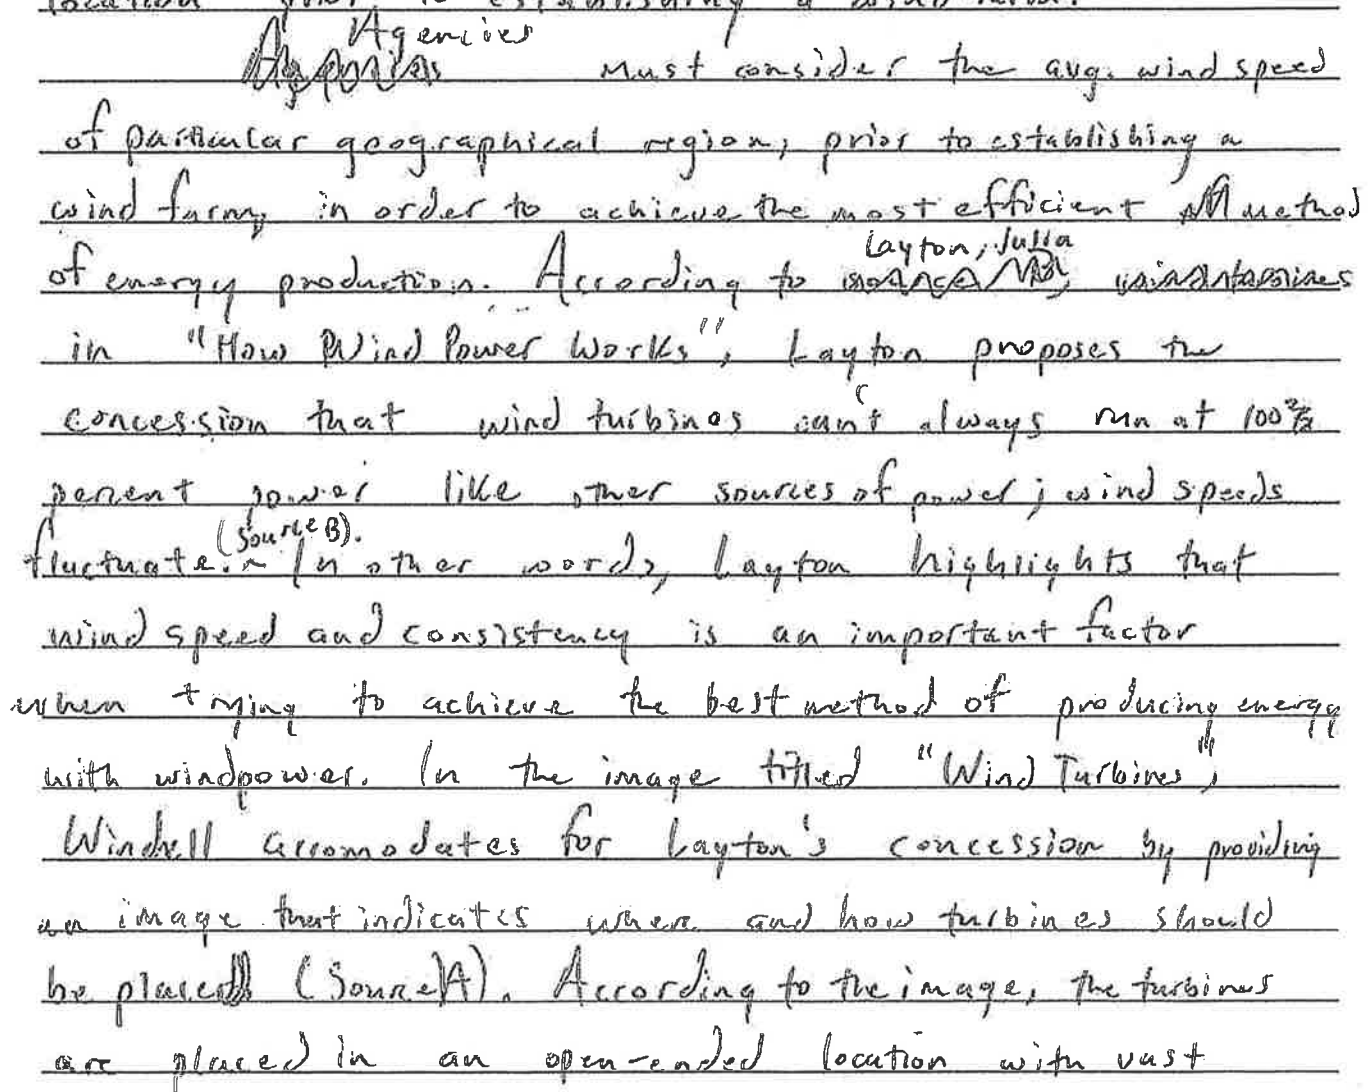 location prior to establishing a wind farm.
Agencies
must consider the avg. wind speed
of particular geographical region, prior to establishing a
wind farm, in order to achieve the most efficient method
Layton, Julia
of energy production. According to
in "How Wind Power Works", Layton proposes the
concession that wind turbines can't always run at 100%
percent power like other sources of power; wind speeds
(Source B).
fluctuate. In other words, Layton highlights that
wind speed and consistency is an important factor
when trying to achieve the best method of producing energy
with windpower. In the image titled "Wind Turbines",
Windell accomodates for Layton's concession by providing
an image that indicates where and how turbines should
be placed (Source A). According to the image, the turbines
are placed in an open-ended location with vast